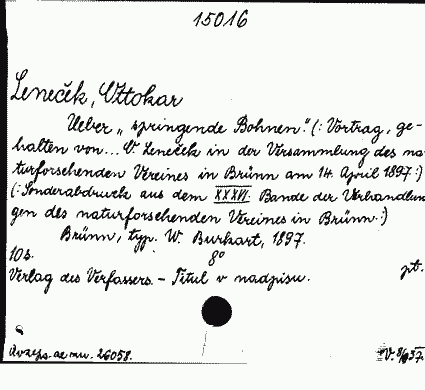 15016
Leneček, Ottokar
Ueber „springende Bohnen". (: Vortrag, ge-
halten von... O. Leneček in der Versammlung des na-
turforschenden Vereines in Brünn am 14. April 1897:)
(: Sonderabdruck aus dem XXXVI. Bande der Verhandlun
gen des naturforschenden Vereines in Brünn.:)
Brünn, typ. W. Burkart, 1897.
10 s. 8°
Verlag des Verfassers. - Titul v nadpisu. pt.
26058.